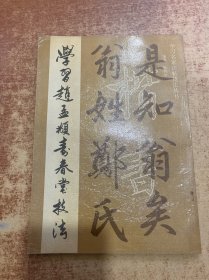 是知翁矣
翁姓鄭氏
學習趙孟頫壽春堂技法